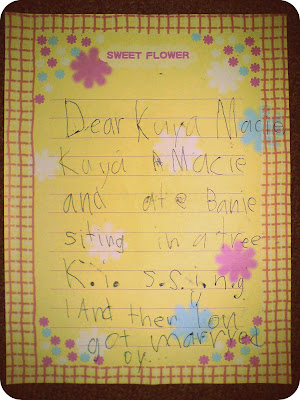 SWEET FLOWER
Dear Kuya Macie
Kuya Macie
and ate Banie
siting in a tree
K.i. s.s.i.n.g
And then You
got married